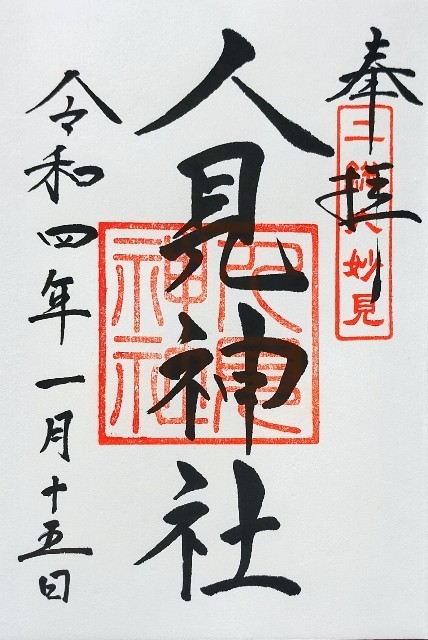 奉拝
妙見
人見神社
人見
神社
令和四年一月十五日